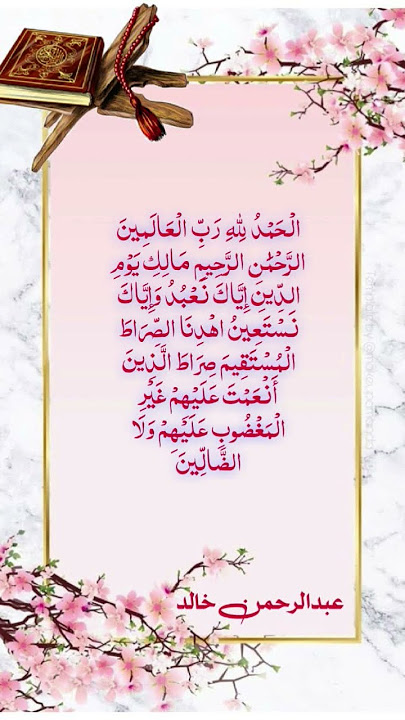 الْحَمْدُ لِلَّهِ رَبِّ الْعَالَمِينَ
الرَّحْمَٰنِ الرَّحِيمِ مَالِكِ يَوْمِ
الدِّينِ إِيَّاكَ نَعْبُدُ وَإِيَّاكَ
نَسْتَعِينُ اهْدِنَا الصِّرَاطَ
الْمُسْتَقِيمَ صِرَاطَ الَّذِينَ
أَنْعَمْتَ عَلَيْهِمْ غَيْرِ
الْمَغْضُوبِ عَلَيْهِمْ وَلَا
الضَّالِّينَ
عبدالرحمن خالد